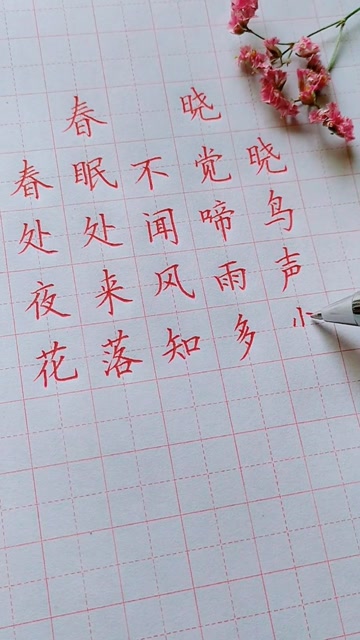 春晓
春眠不觉晓
处处闻啼鸟
夜来风雨声
花落知多小